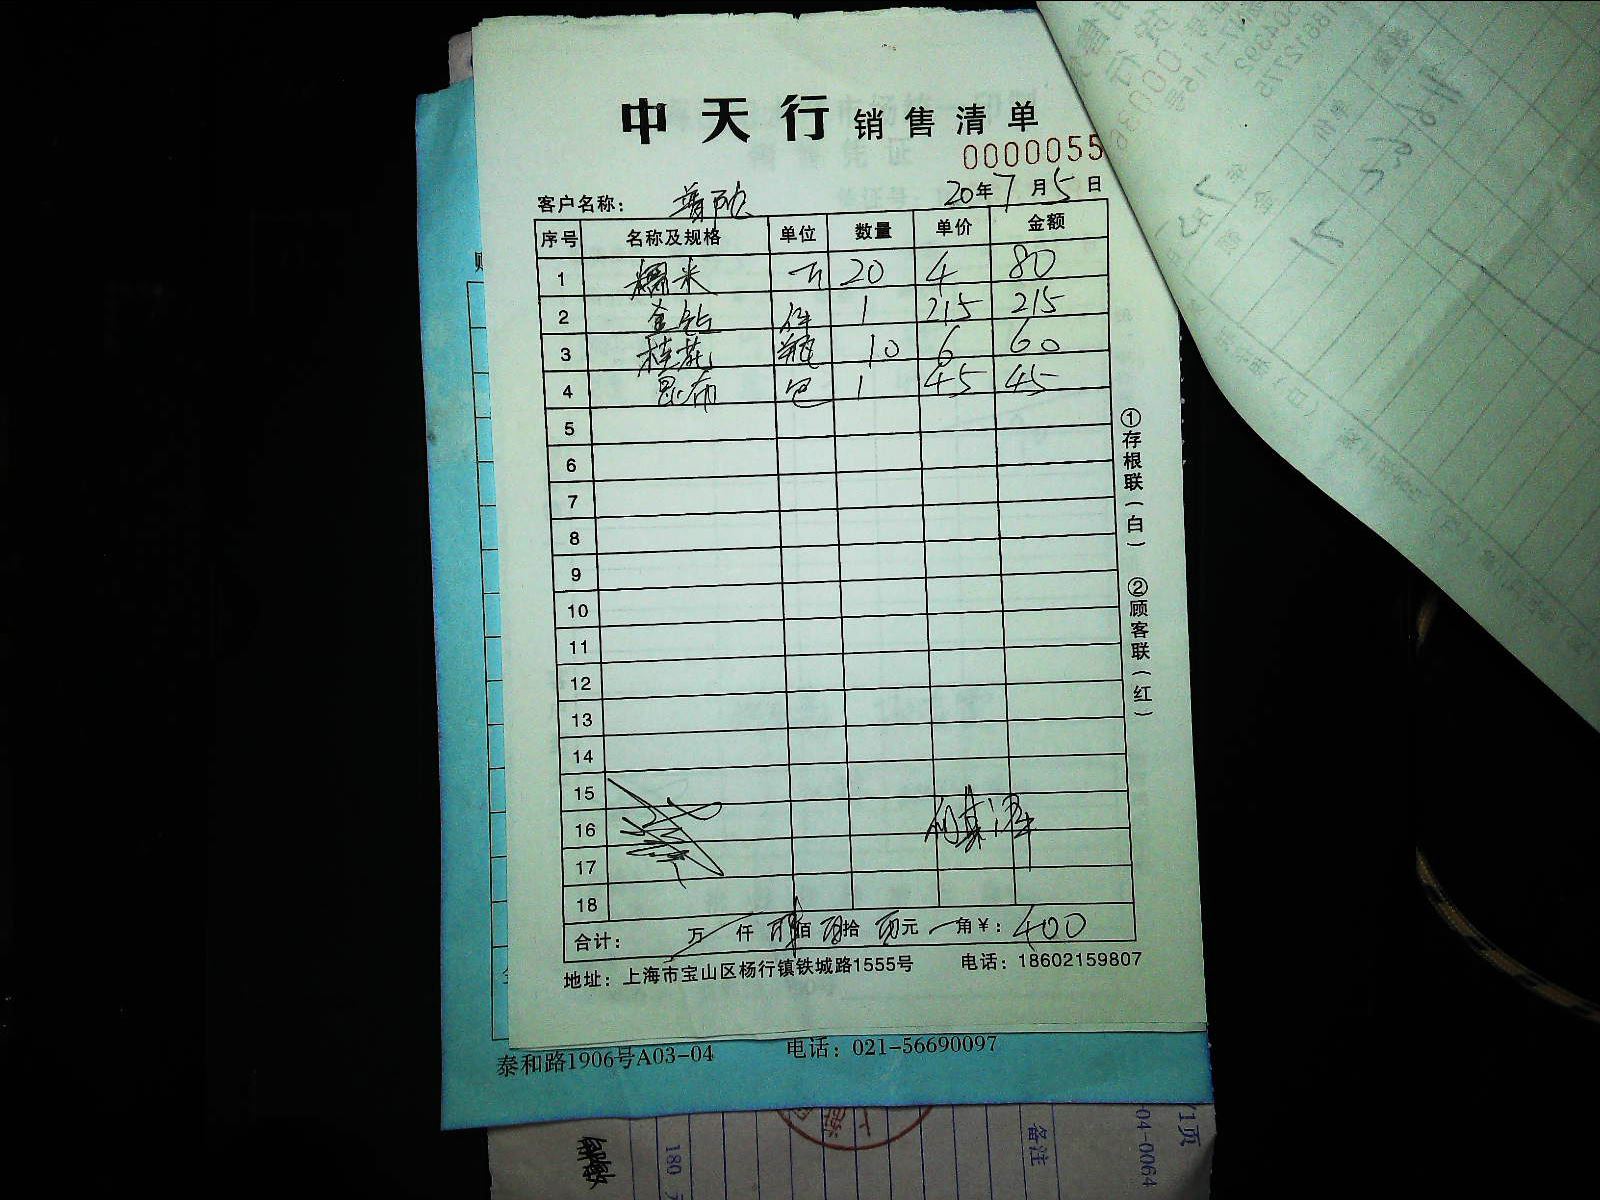 中天行 销售清单
0000055
客户名称: 普欣 20年7月5日
序号 名称及规格 单位 数量 单价 金额
1 糯米 斤 20 4 80
2 金钻 件 1 215 215
3 桂花 瓶 10 6 60
4 昆布 包 1 45 45
5
6
7
8
9
10
11
12
13
14
15
16
17
18
合计: 万 仟 肆佰 零拾 零元 角¥: 400
地址: 上海市宝山区杨行镇铁城路1555号 电话: 18602159807
①存根联(白) ②顾客联(红)
泰和路1906号A03-04 电话: 021-56690097
180
备注
04-0064
/1页